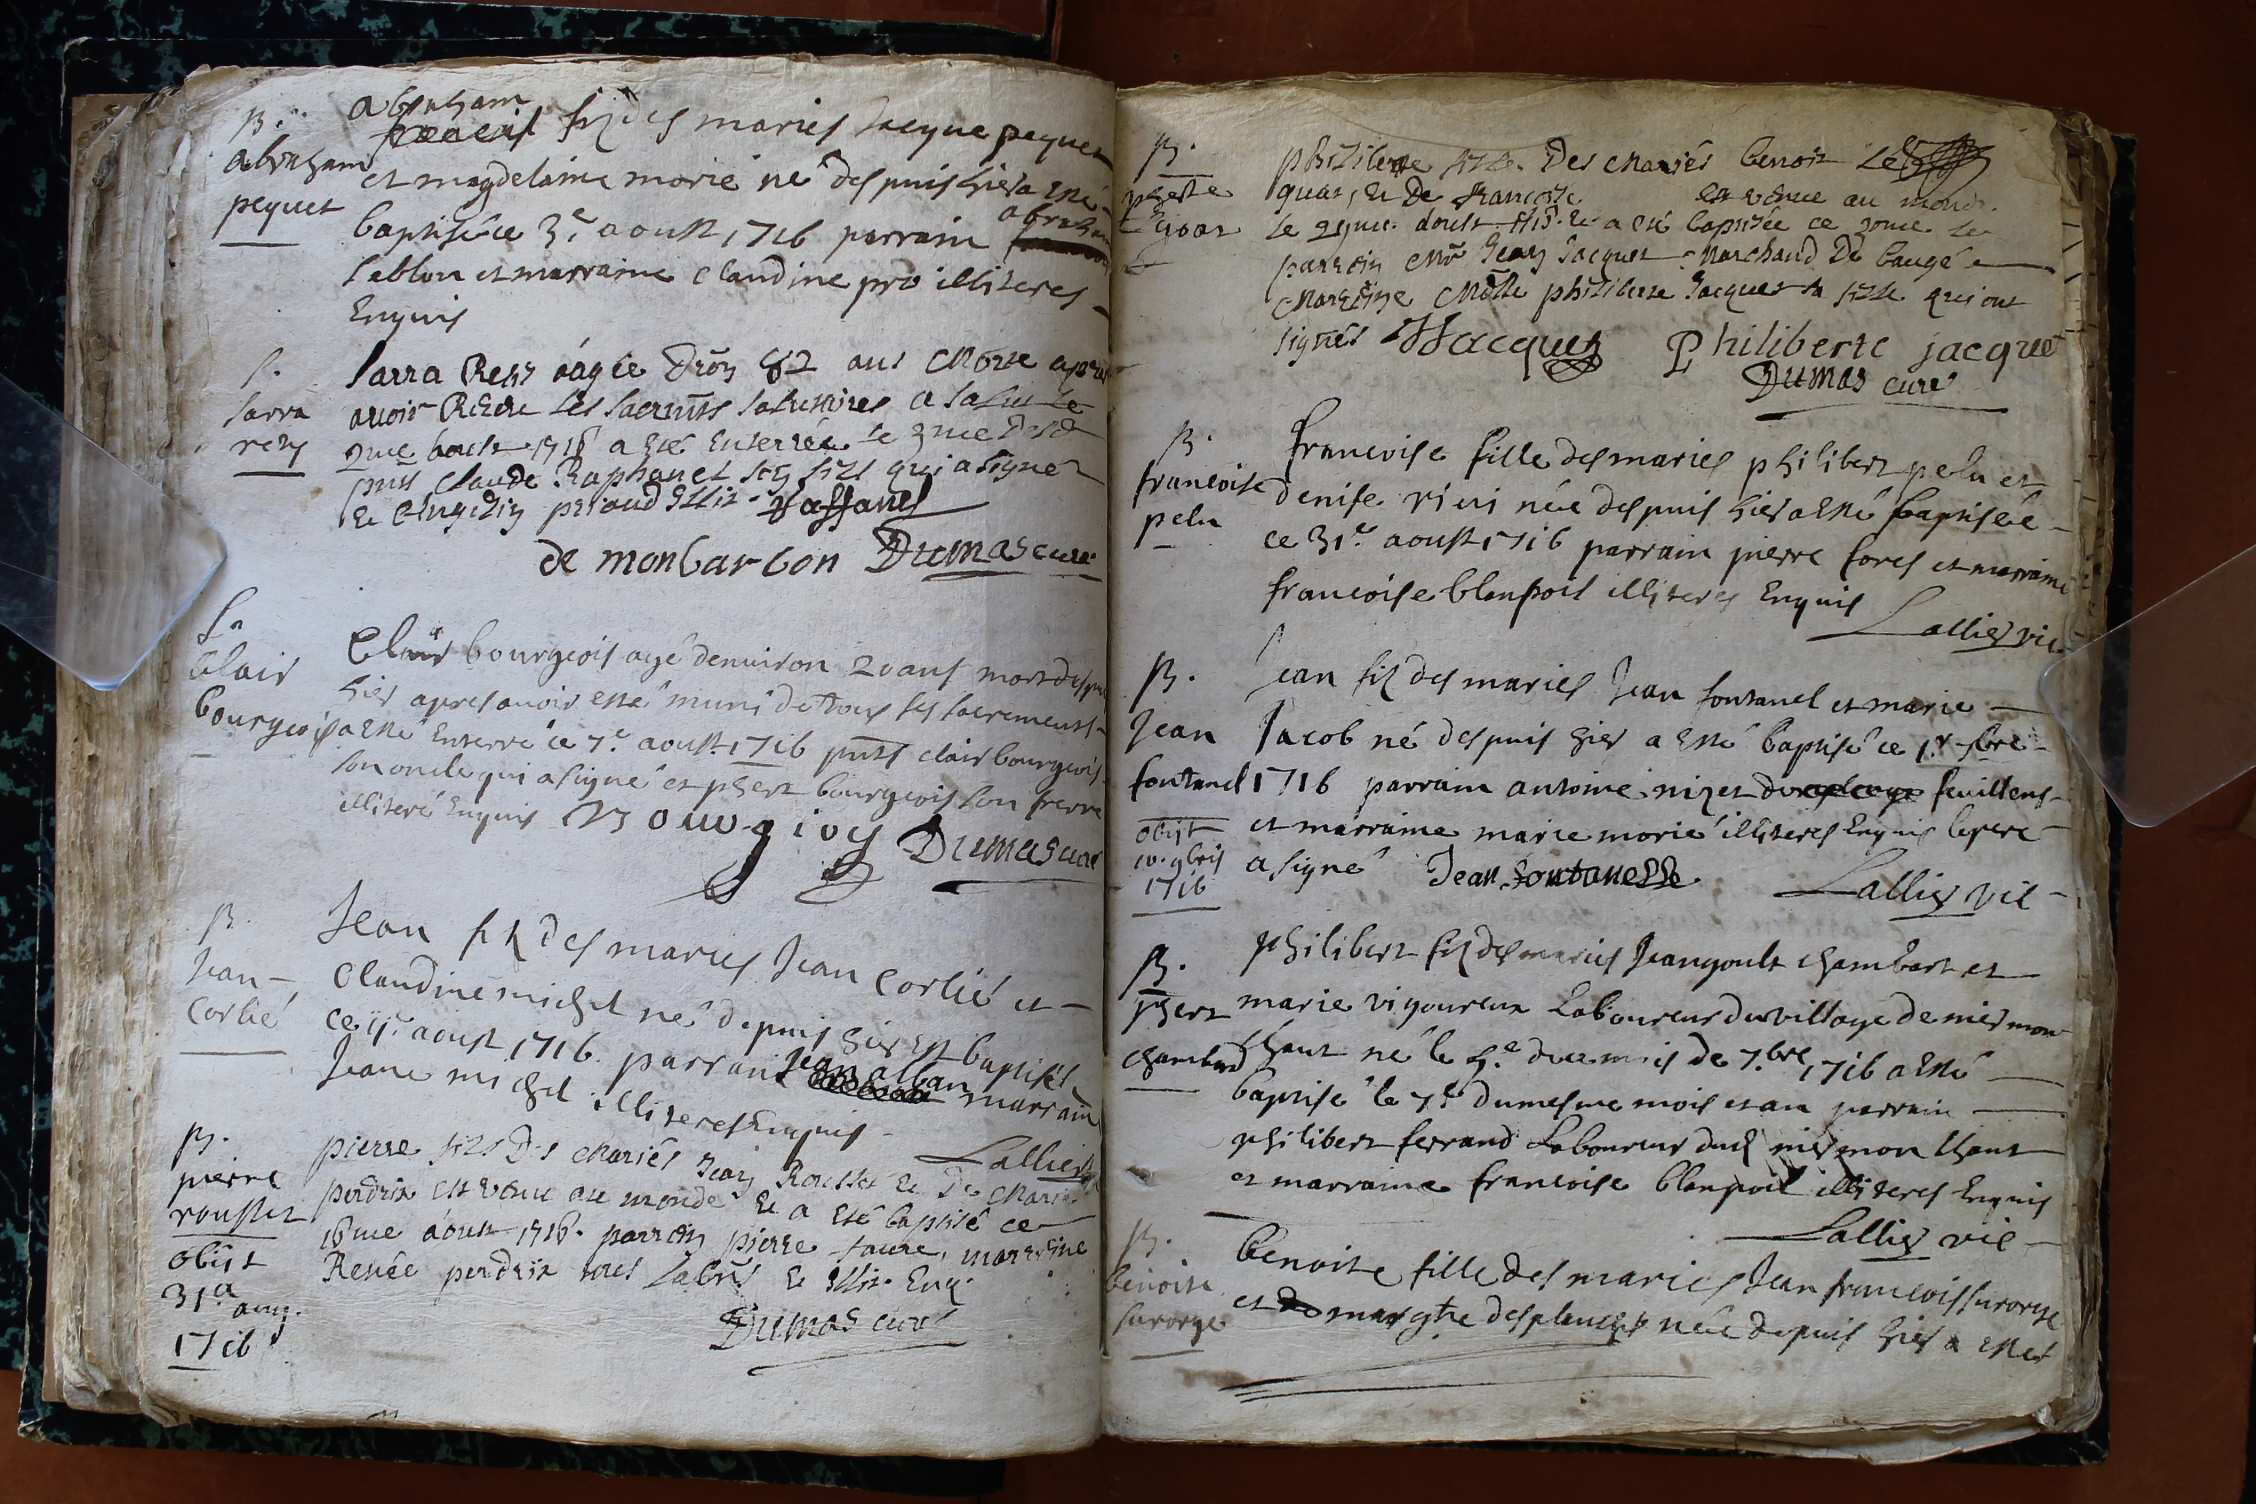 B.
abraham
pequet
abraham
francois fiz des mariés Jacque pequet
et magdelaine morié né despuis hier a esté
baptisé ce 3.e aoust 1716 parrain abraham
leblon et marraine claudine pro illiteres
Enquis
S.
Sarra
rey
Sarra Rey áagée Dron 82 ans Morte apres
avoir
2me aoust 1716 a Esté Enterrée le 3me Dudt
pnts Claude Raphanel son fils qui a signé
Raffanel
de monbarbon Dumas curé
S.
Clair
bourgeois
Clair bourgeois agé denuiron 20 ans mort despuis
hier apres auoir esté muni de tous les sacrements
a esté Enterré ce 7.e aoust 1716 pnts clair bourgeois
son oncle qui a signé et phert bourgeois son frerre
illiteré Enquis Bourgioy Dumas curé
B.
Jean
Corlié
Jean fiz des mariés Jean Corlié et
Claudine michel né depuis hier Est baptisé
ce 11.e aoust 1716. parrain Jean alban marraine
Jeane michel illiteres Enquis
Lallier
B.
pierre
rousset
obiit
31.a aug.
1716
pierre fils Des Mariés Jean Rousset Et De Marie
perdrix est venu au monde Et a Esté baptisé ce
16me aoust 1716. parrain pierre faure, marraine
Renée perdrix tous Labrs Et Illit. Enq.
Dumas curé
B.
pherte
Philiberte fille Des Mariés benoit
Et De francoise est venue au monde
le aoust 1716. Et a esté baptisée ce le
parrain Mre Jean Jacquet Marchand De baugé
Marraine Mdlle philiberte Jacquet sa fille qui ont
signés JJacquet Philiberte jacquet
Dumas curé
B.
francoise
pelu
francoise fille des mariés philibert pelu et
denise viui née despuis hier a Esté baptisée
ce 31.e aoust 1716 parrain pierre fores et marraine
francoise blanpoil illiteres Enquis
Lallier vic.
B.
Jean
fontanel
obijt
10. 9bris
1716
Jean fiz des mariés Jean fontanel et marie
Jacob né despuis hier a Esté baptisé ce 1.r 7bre
1716 parrain antoine nizet de feuillens
et marraine marie morié illiteres Enquis le pere
a signé Jean Fontanelle Lallier vic
B.
phert
chambard
philibert fiz des mariés Jeangoult chambart et
marie vigoureux Laboureur du village de mermon
chaut né le 5.e du mois de 7.bre 1716 a Esté
baptisé le 7.e du mesme mois et an parrain
philibert ferrand Laboureur dud mermon chaut
et marraine francoise blanpoil illiteres Enquis
Lallier vic
B.
benoite
surorge
benoite fille des mariés Jean francois surorge
et margte desplanches née depuis hier a esté